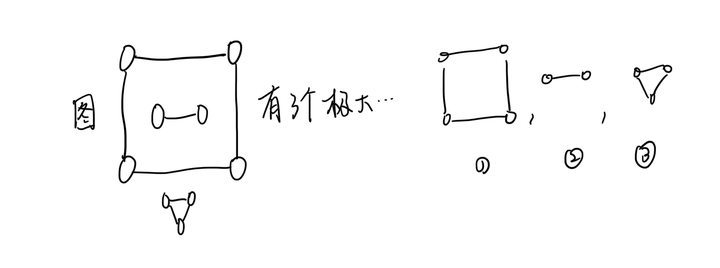 图 有3个极大…
, ,
① ② ③